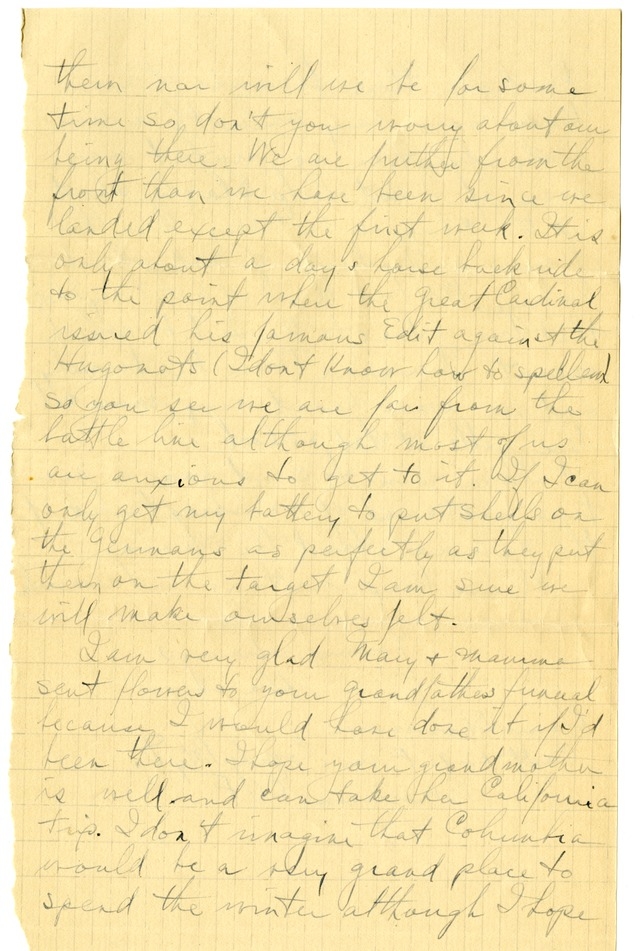 them nor will we be for some
time so don't you worry about our
being there. We are further from the
front than we have been since we
landed except the first week. It is
only about a day's horse back ride
to the point where the great Cardinal
issued his famous Edit against the
Hugonots (I don't know how to spell em)
So you see we are far from the
battle line although most of us
are anxious to get to it. If I can
only get my battery to put shells on
the Germans as perfectly as they put
them on the target I am sure we
will make ourselves felt.
I am very glad Mary + Mamma
sent flowers to your grandfathers funeral
because I would have done it if I'd
been there. I hope your grandmother
is well and can take her California
trip. I don't imagine that Columbia
would be a very grand place to
spend the winter although I hope